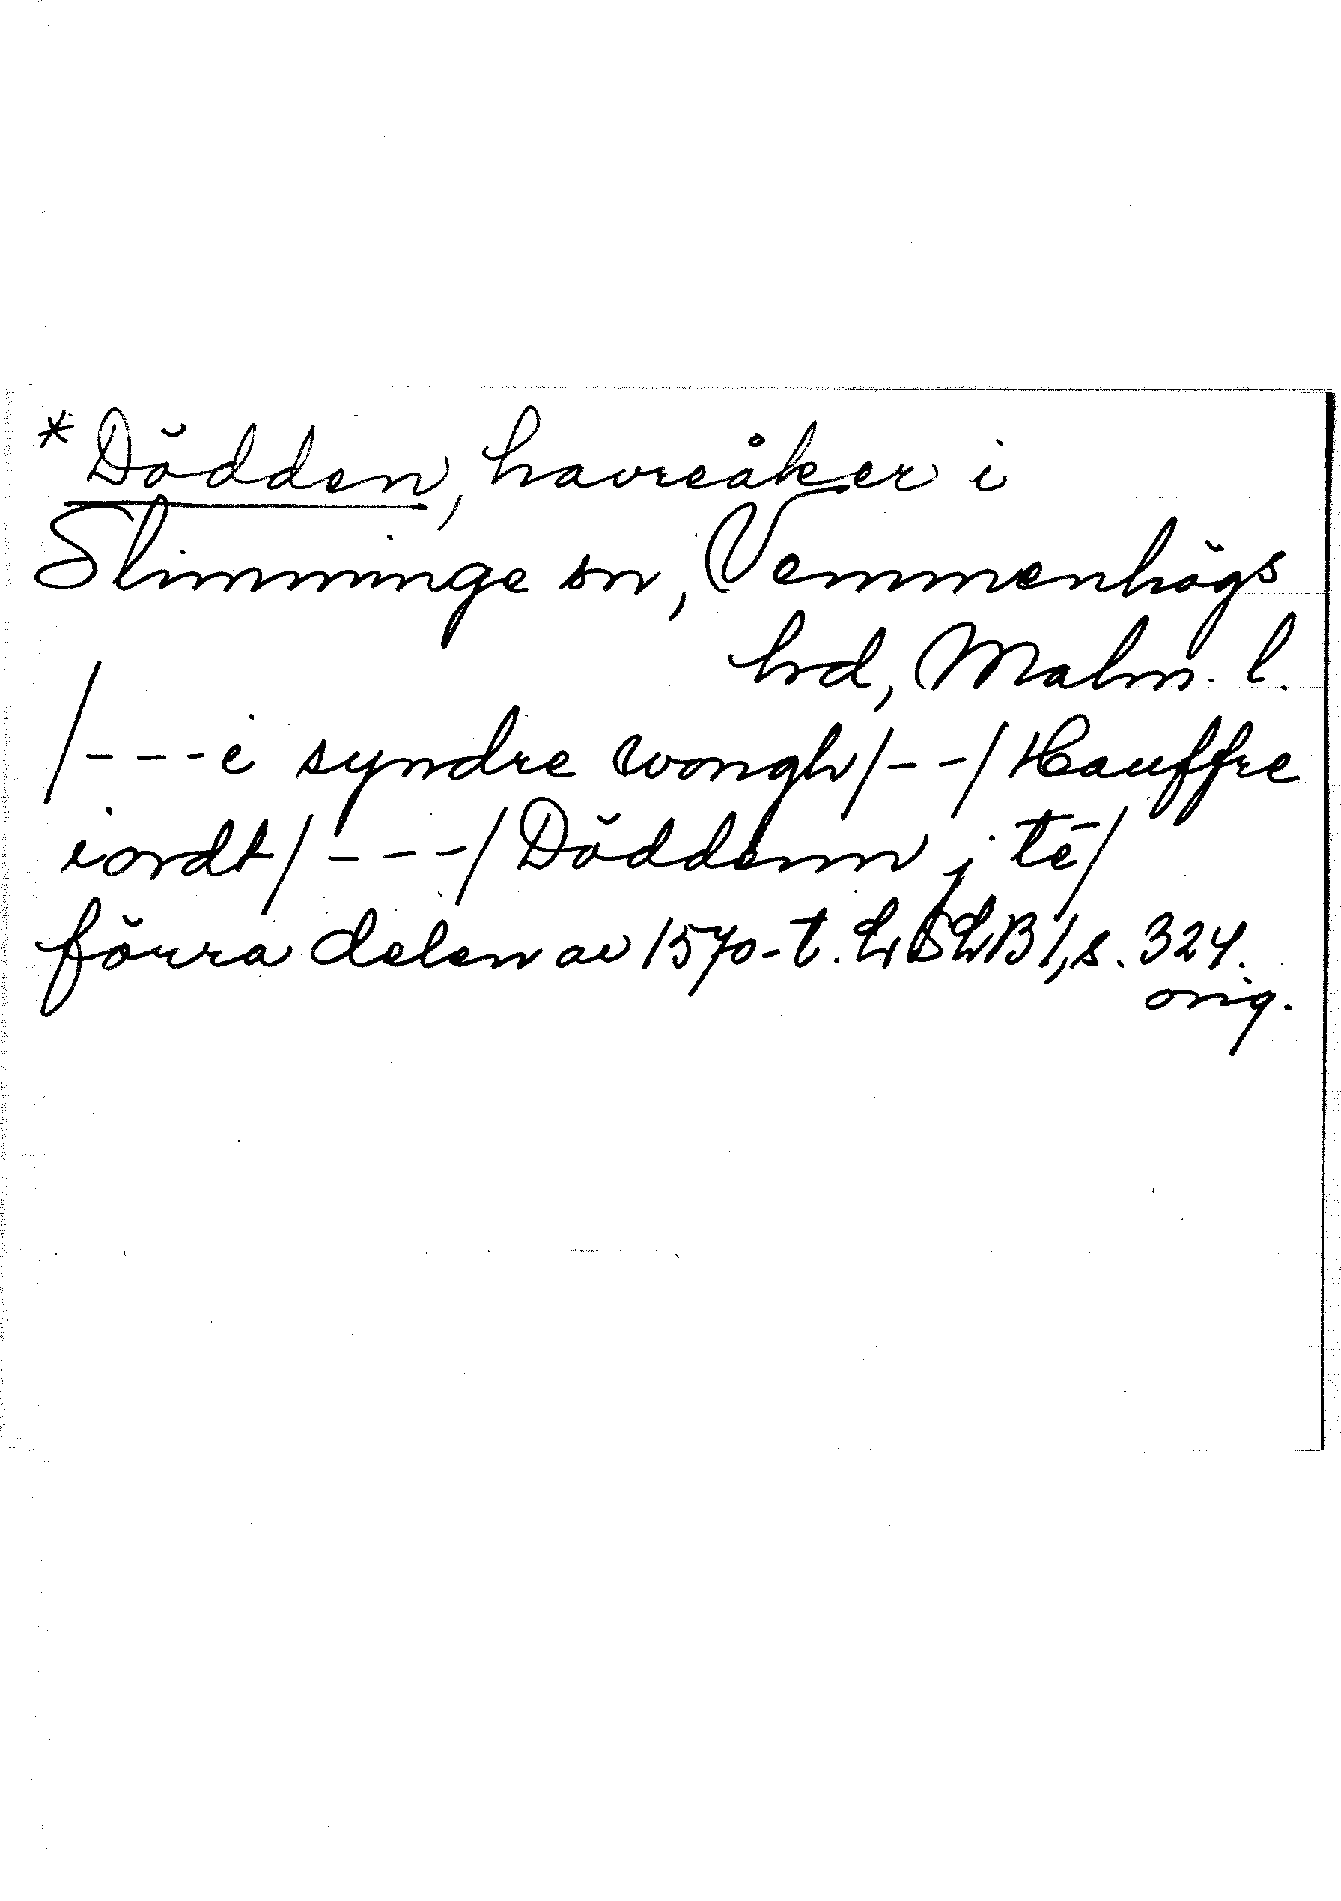 *Dödden, havreåker i
Slimminge sn, Vemmenhögs
hd, Malm. l.
/---i syndre wongh/--/Hauffre
iordt/---/Döddenn j tē/
förra delen av 1570-t. LSLB 1, s. 324.
orig.